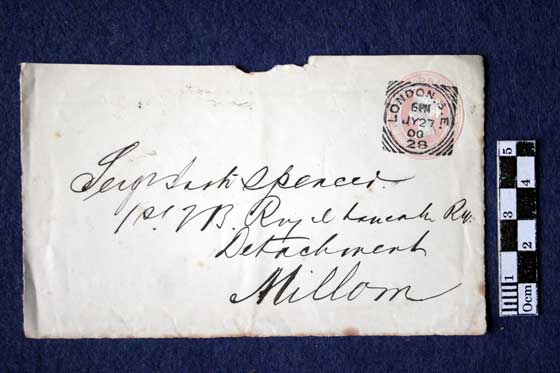 LONDON. S.E.
6PM
JY27
00
28
Sergt Spencer.
1st VB. Royl Lancaster Rgt.
Detachment
Millom
5
4
3
2
1
0cm